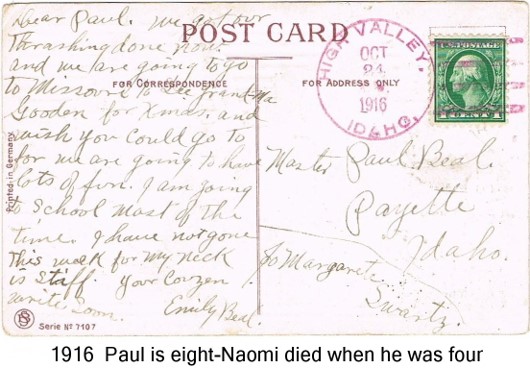 Dear Paul. we got our
POST CARD
Thrashing done now.
and we are going to go
to Missouri to see grandma
FOR CORRESPONDENCE
FOR ADDRESS ONLY
Gooden for Xmas. and
wish you could go to
for we are going to have
lots of fun. I am going
to School most of the
time. I have not gone
This week for my neck
is Staff. your Couzen
write Soon.
Emily Beal.
Printed in Germany
Serie No 7107
HIGH VALLEY,
OCT
24
1916
IDAHO.
U.S. POSTAGE
Master Paul Beal.
Payette
Idaho.
To Margarete
Swartz
1916 Paul is eight-Naomi died when he was four